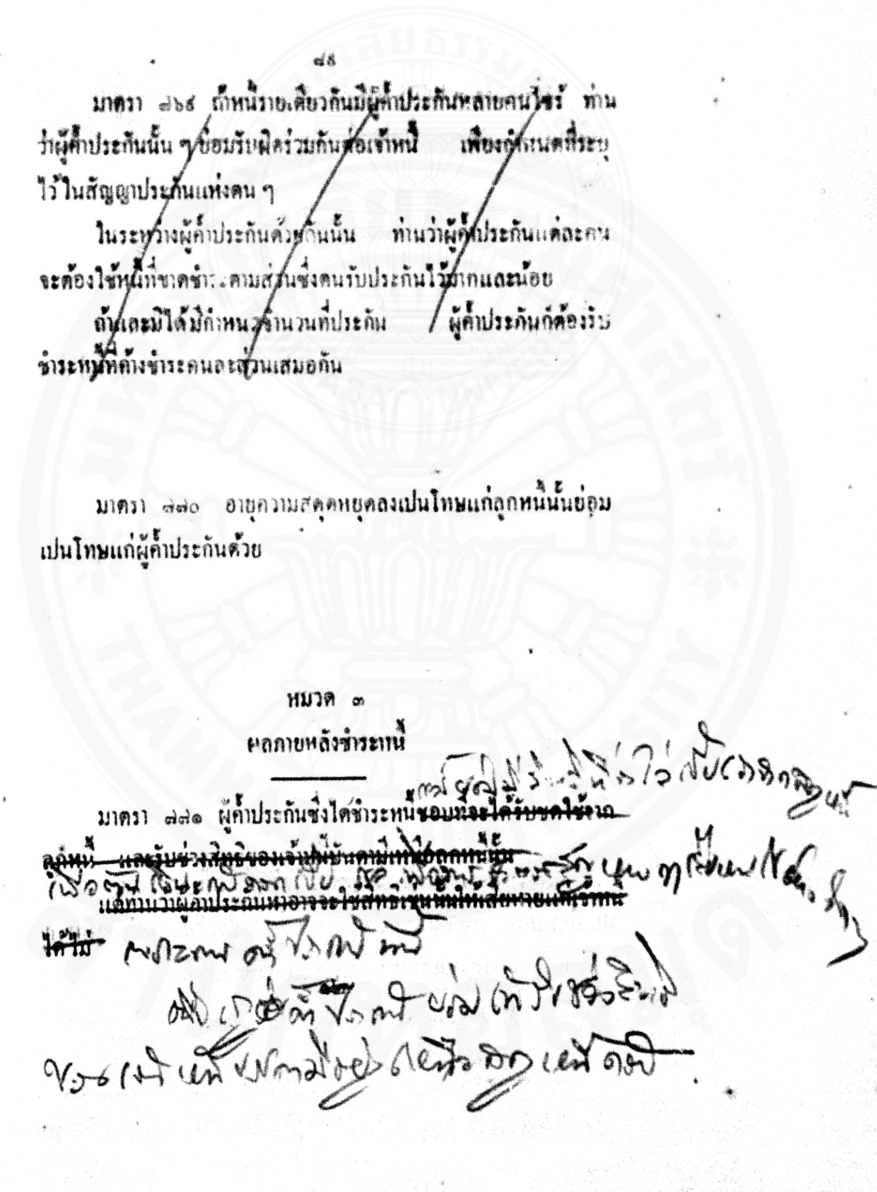 ๘๙
มาตรา ๗๖๙ ถ้าหนี้รายเดียวกันมีผู้ค้ำประกันหลายคนไซร้ ท่าน
ว่าผู้ค้ำประกันนั้น ๆ ย่อมรับผิดร่วมกันต่อเจ้าหนี้ เพียงกำหนดที่ระบุ
ไว้ในสัญญาประกันแห่งตน ๆ
ในระหว่างผู้ค้ำประกันด้วยกันนั้น ท่านว่าผู้ค้ำประกันแต่ละคน
จะต้องใช้หนี้ที่ขาดชำระตามส่วนซึ่งตนรับประกันไว้มากและน้อย
ถ้าและมิได้มีกำหนดจำนวนที่ประกัน ผู้ค้ำประกันก็ต้องรับ
ชำระหนี้ที่ค้างชำระคนละส่วนเสมอกัน
มาตรา ๗๗๐ อายุความสดุดหยุดลงเปนโทษแก่ลูกหนี้นั้นย่อม
เปนโทษแก่ผู้ค้ำประกันด้วย
หมวด ๓
ผลภายหลังชำระหนี้
มาตรา ๗๗๑ ผู้ค้ำประกันซึ่งได้ชำระหนี้ชอบที่จะได้รับชดใช้จาก
ลูกหนี้ และรับช่วงสิทธิของเจ้าหนี้บันดามีเหนือลูกหนี้นั้น
แต่ท่านว่าผู้ค้ำประกันหาอาจจะใช้สิทธิเช่นนั้นให้เสียหายแก่เจ้าหนี้
ได้ไม่
เพราะการค้ำประกันนั้น
ผู้ค้ำประกันย่อมเข้ารับช่วงสิทธิ
ของเจ้าหนี้บรรดามีอยู่เหนือลูกหนี้ด้วย